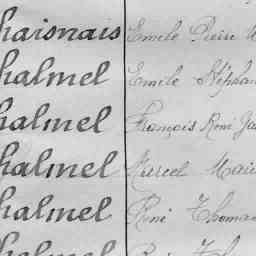 haisnais Emile Pierre
halmel Emile Stéphan
halmel François René
halmel Marcel Mari
halmel René Thomas
halmel